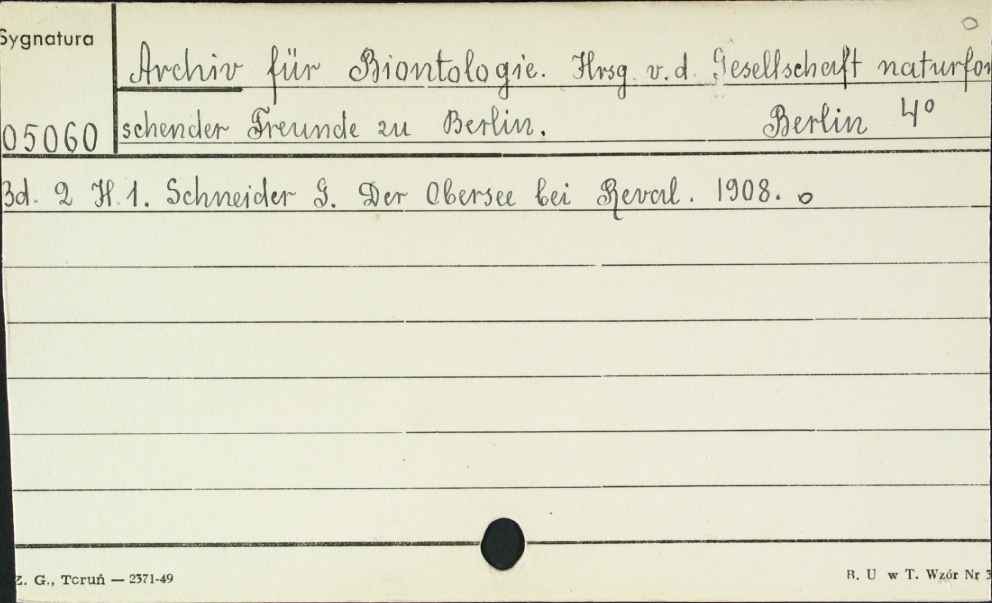 Sygnatura
Archiv für Biontologie. Hrsg. v. d. Gesellschaft naturfor
05060 schender Freunde zu Berlin. Berlin 4°
Bd. 2 H. 1. Schneider G. Der Obersee bei Reval. 1908. o
Z. G., Toruń — 2371-49
B. U w T. Wzór Nr 3